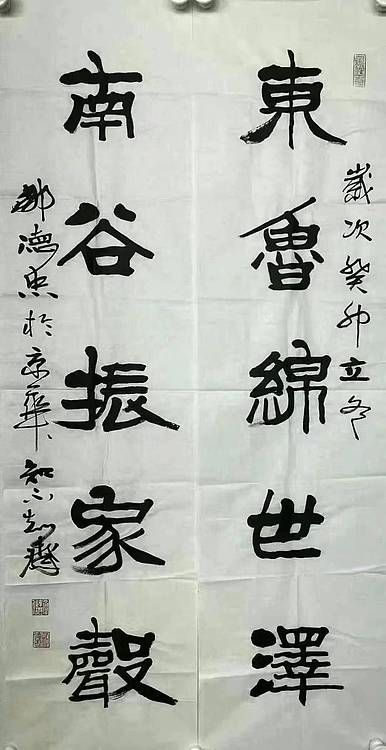 歲次癸卯立冬
東魯綿世澤
南谷振家聲
鄒德忠於京華、知不知齋